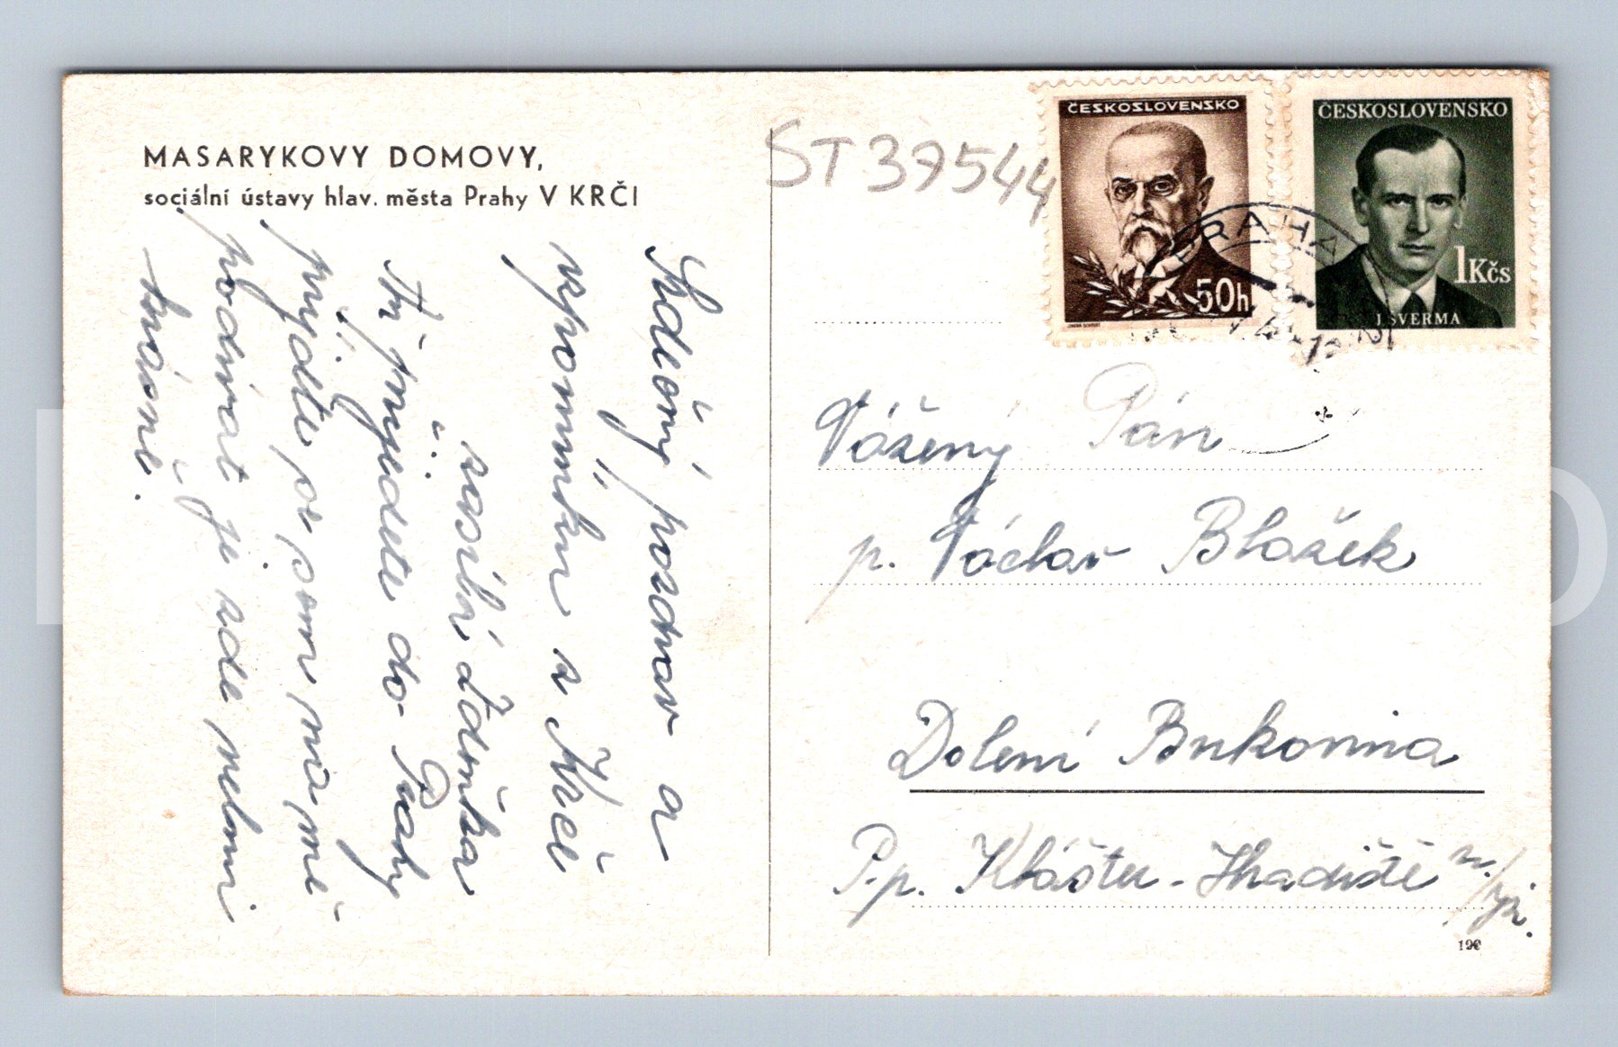 MASARYKOVY DOMOVY,
sociální ústavy hlav. města Prahy V KRČI
Srdečný pozdrav a
vzpomínku z Krče
zasílá Zdeňka
Až přijedete do Prahy
přijďte se sem na mě
podívat je zde velmi
krásně.
ST 39544
ČESKOSLOVENSKO
50h
ČESKOSLOVENSKO
1Kčs
J. ŠVERMA
PRAHA
Vážený Pán
p. Václav Blažek
Dolení Bukovina
P.p. Klášter-Hradiště n/Jiz.
190